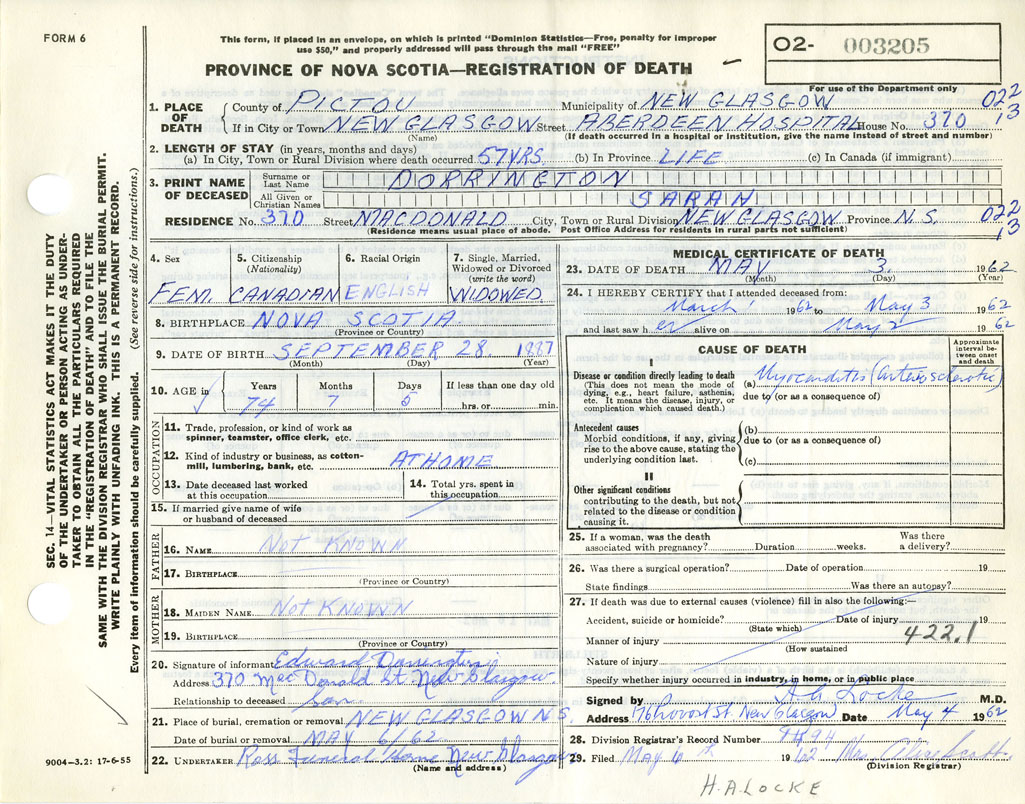 FORM 6
This form, if placed in an envelope, on which is printed "Dominion Statistics—Free, penalty for improper
use $50," and properly addressed will pass through the mail "FREE"
PROVINCE OF NOVA SCOTIA—REGISTRATION OF DEATH
O2- 003205
For use of the Department only
1. PLACE OF DEATH
County of PICTOU Municipality of NEW GLASGOW 022
If in City or Town NEW GLASGOW Street ABERDEEN HOSPITAL House No. 370 13
(Name) (If death occurred in a hospital or institution, give the name instead of street and number)
2. LENGTH OF STAY (in years, months and days)
(a) In City, Town or Rural Division where death occurred 57 YRS. (b) In Province LIFE (c) In Canada (if immigrant)
3. PRINT NAME OF DECEASED
Surname or Last Name DORRINGTON
All Given or Christian Names SARAH
RESIDENCE No. 370 Street MACDONALD City, Town or Rural Division NEW GLASGOW Province N.S. 022
13
(Residence means usual place of abode. Post Office Address for residents in rural parts not sufficient)
4. Sex FEM.
5. Citizenship (Nationality) CANADIAN
6. Racial Origin ENGLISH
7. Single, Married, Widowed or Divorced (write the word) WIDOWED
8. BIRTHPLACE NOVA SCOTIA
(Province or Country)
9. DATE OF BIRTH SEPTEMBER 28. 1887
(Month) (Day) (Year)
10. AGE in Years 74 Months 7 Days 5 If less than one day old hrs. or min.
OCCUPATION
11. Trade, profession, or kind of work as
spinner, teamster, office clerk, etc.
12. Kind of industry or business, as cotton-
mill, lumbering, bank, etc. AT HOME
13. Date deceased last worked
at this occupation
14. Total yrs. spent in
this occupation
15. If married give name of wife
or husband of deceased
FATHER
16. NAME Not KNOWN
17. BIRTHPLACE
(Province or Country)
MOTHER
18. MAIDEN NAME Not KNOWN
19. BIRTHPLACE
(Province or Country)
20. Signature of informant Edward Dorrington
Address 370 MacDonald St. New Glasgow
Relationship to deceased Son
21. Place of burial, cremation or removal NEW GLASGOW N.S.
Date of burial or removal MAY 6/62
22. UNDERTAKER Ross Funeral Home New Glasgow
(Name and address)
MEDICAL CERTIFICATE OF DEATH
23. DATE OF DEATH MAY 3. 1962
(Month) (Day) (Year)
24. I HEREBY CERTIFY that I attended deceased from:
March 1962 to May 3 1962
and last saw her alive on May 2 1962
CAUSE OF DEATH
Approximate interval between onset and death
I
Disease or condition directly leading to death
(This does not mean the mode of
dying, e.g., heart failure, asthenia,
etc. It means the disease, injury, or
complication which caused death.)
(a) Myocarditis (arterio sclerotic)
due to (or as a consequence of)
Antecedent causes
Morbid conditions, if any, giving
rise to the above cause, stating the
underlying condition last.
(b)
due to (or as a consequence of)
(c)
II
Other significant conditions
contributing to the death, but not
related to the disease or condition
causing it.
25. If a woman, was the death
associated with pregnancy? Duration weeks. Was there
a delivery?
26. Was there a surgical operation? Date of operation 19
State findings Was there an autopsy?
27. If death was due to external causes (violence) fill in also the following:—
Accident, suicide or homicide? Date of injury 19
(State which)
Manner of injury 422.1
(How sustained
Nature of injury
Specify whether injury occurred in industry, in home, or in public place
Signed by H A Locke M.D.
Address 176 Provost St. New Glasgow Date May 4 1962
28. Division Registrar's Record Number
29. Filed May 6th 1962 Mrs.
(Division Registrar)
H. A. LOCKE
9004—3.2: 17-6-55
SEC. 14—VITAL STATISTICS ACT MAKES IT THE DUTY
OF THE UNDERTAKER OR PERSON ACTING AS UNDER-
TAKER TO OBTAIN ALL THE PARTICULARS REQUIRED
IN THE "REGISTRATION OF DEATH" AND TO FILE THE
SAME WITH THE DIVISION REGISTRAR WHO SHALL ISSUE THE BURIAL PERMIT.
WRITE PLAINLY WITH UNFADING INK. THIS IS A PERMANENT RECORD.
Every item of information should be carefully supplied. (See reverse side for instructions.)